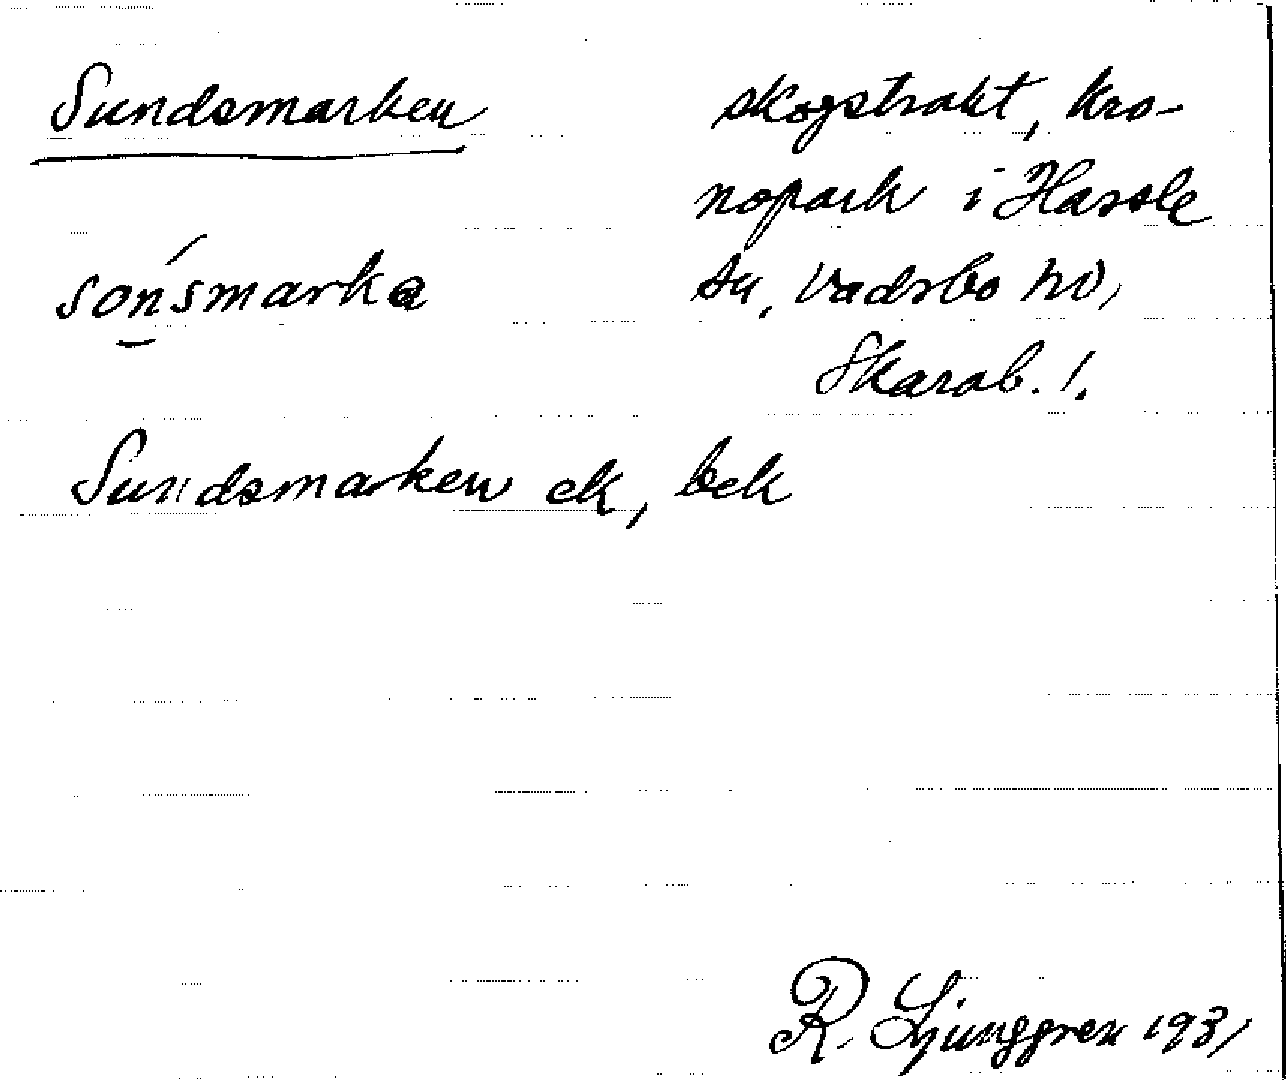 Sundsmarken
skogstrakt, kro-
nopark i Hassle
sn, Vadsbo hd,
Skarab. !.
sońsmarka
Sundsmarken ek, bek
R. Ljunggren 1931